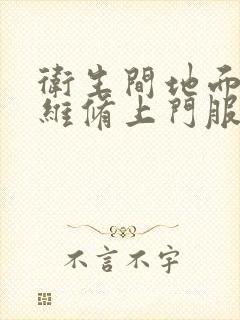 衛生間地面
維脩上門服
不言不字